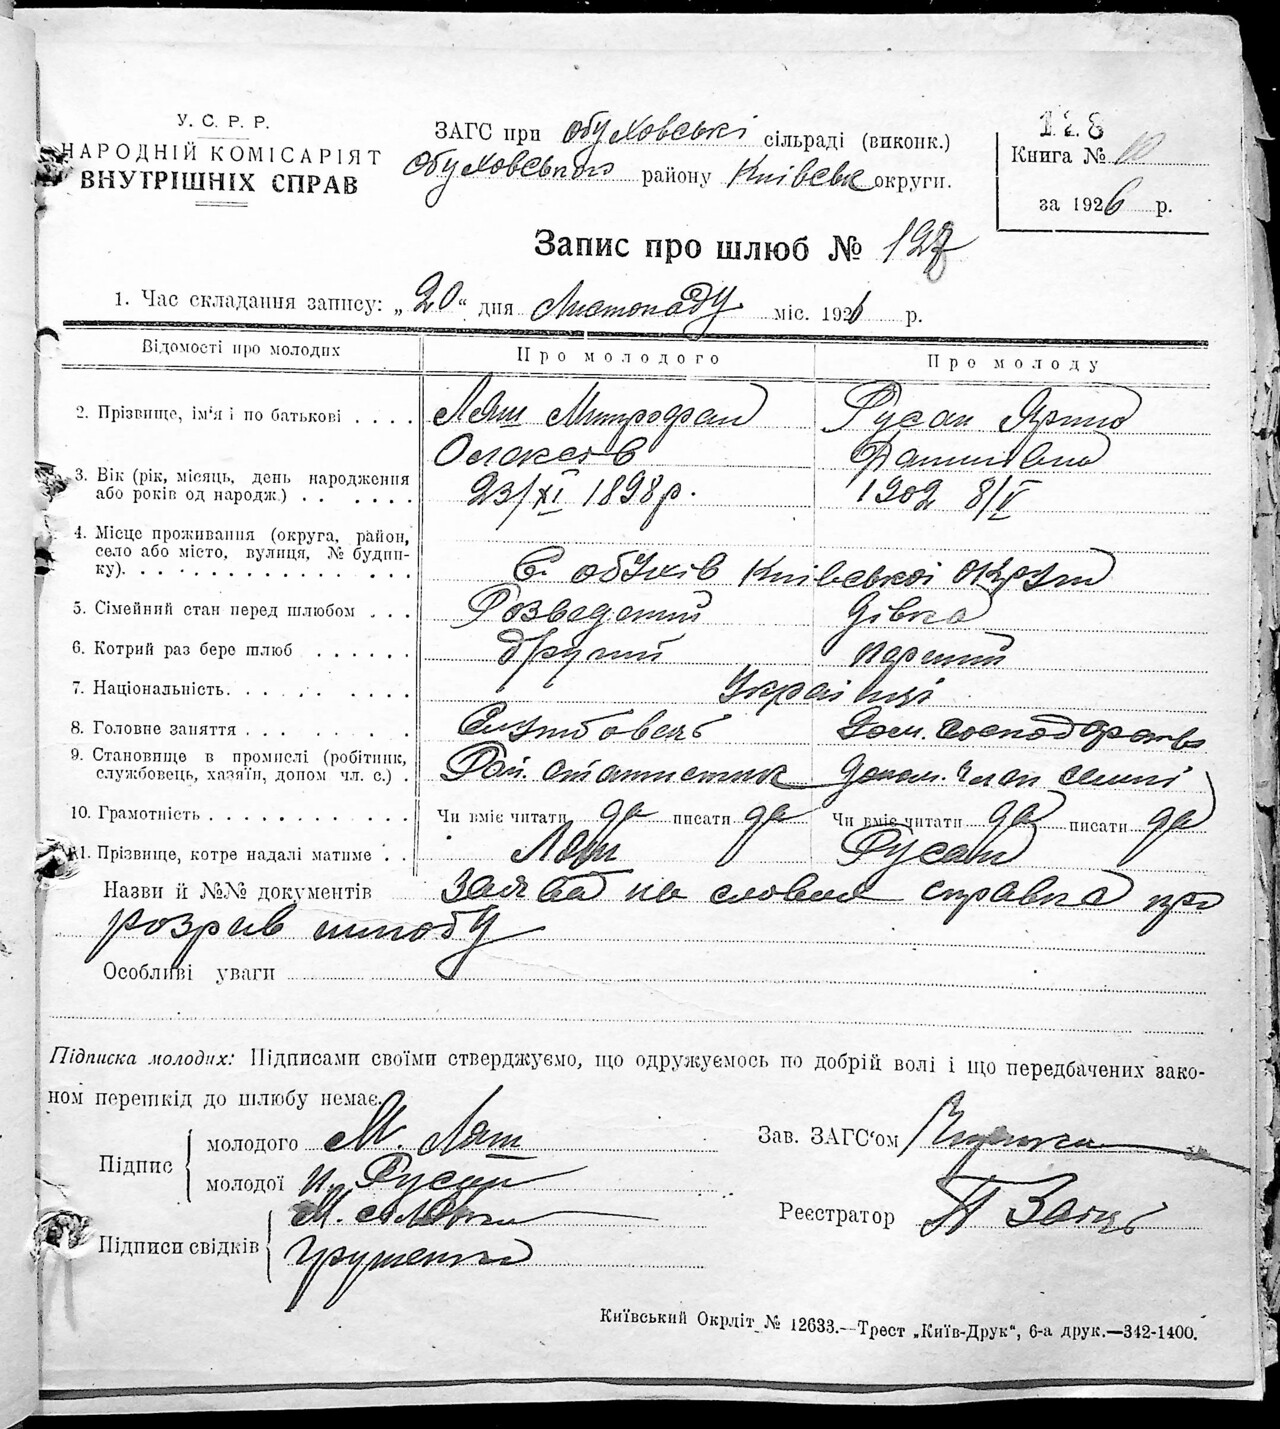 У. С. Р. Р.
НАРОДНІЙ КОМІСАРІЯТ
ВНУТРІШНІХ СПРАВ
ЗАГС при Обуховські сільраді (виконк.)
Обуховського району Київськ округи.
128
Книга № 10
за 1926 р.
Запис про шлюб № 127
1. Час складання запису: „20“ дня Листопаду міс. 1926 р.
Відомості про молодих Про молодого Про молоду
2. Прізвище, ім'я і по батькові . . . . Ляш Митрофан Русан Ярина
Олексієв Данилівна
3. Вік (рік, місяць, день народження
або років од народж.) . . . . . . 23/XI 1898 р. 1902 8/V
4. Місце проживання (округа, район,
село або місто, вулиця, № будин-
ку). . . . . . . . . . . . . . . . С. Обухів Київської округи
5. Сімейний стан перед шлюбом . . . Розведений дівка
6. Котрий раз бере шлюб . . . . . . другий перший
7. Національність. . . . . . . . . . Українці
8. Головне заняття . . . . . . . . . Службовець Дом. господарств
9. Становище в промислі (робітник,
службовець, хазяїн, допом чл. с.) . Рай. статистик допом. член семьї
10. Грамотність . . . . . . . . . . . Чи вміє читати да писати да Чи вміє читати да писати да
11. Прізвище, котре надалі матиме . . Ляш Русан
Назви й №№ документів Заява на словах справка про
розрив шлюбу
Особливі уваги
Підписка молодих: Підписами своїми стверджуємо, що одружуємось по добрій волі і що передбачених зако-
ном перешкід до шлюбу немає.
Підпис
молодого М. Ляш
молодої Русан
Підписи свідків
М.
Грушенко
Зав. ЗАГС‘ом
Реєстратор П Заєць
Київський Окрліт № 12633.—Трест „Київ-Друк“, 6-а друк.—342-1400.